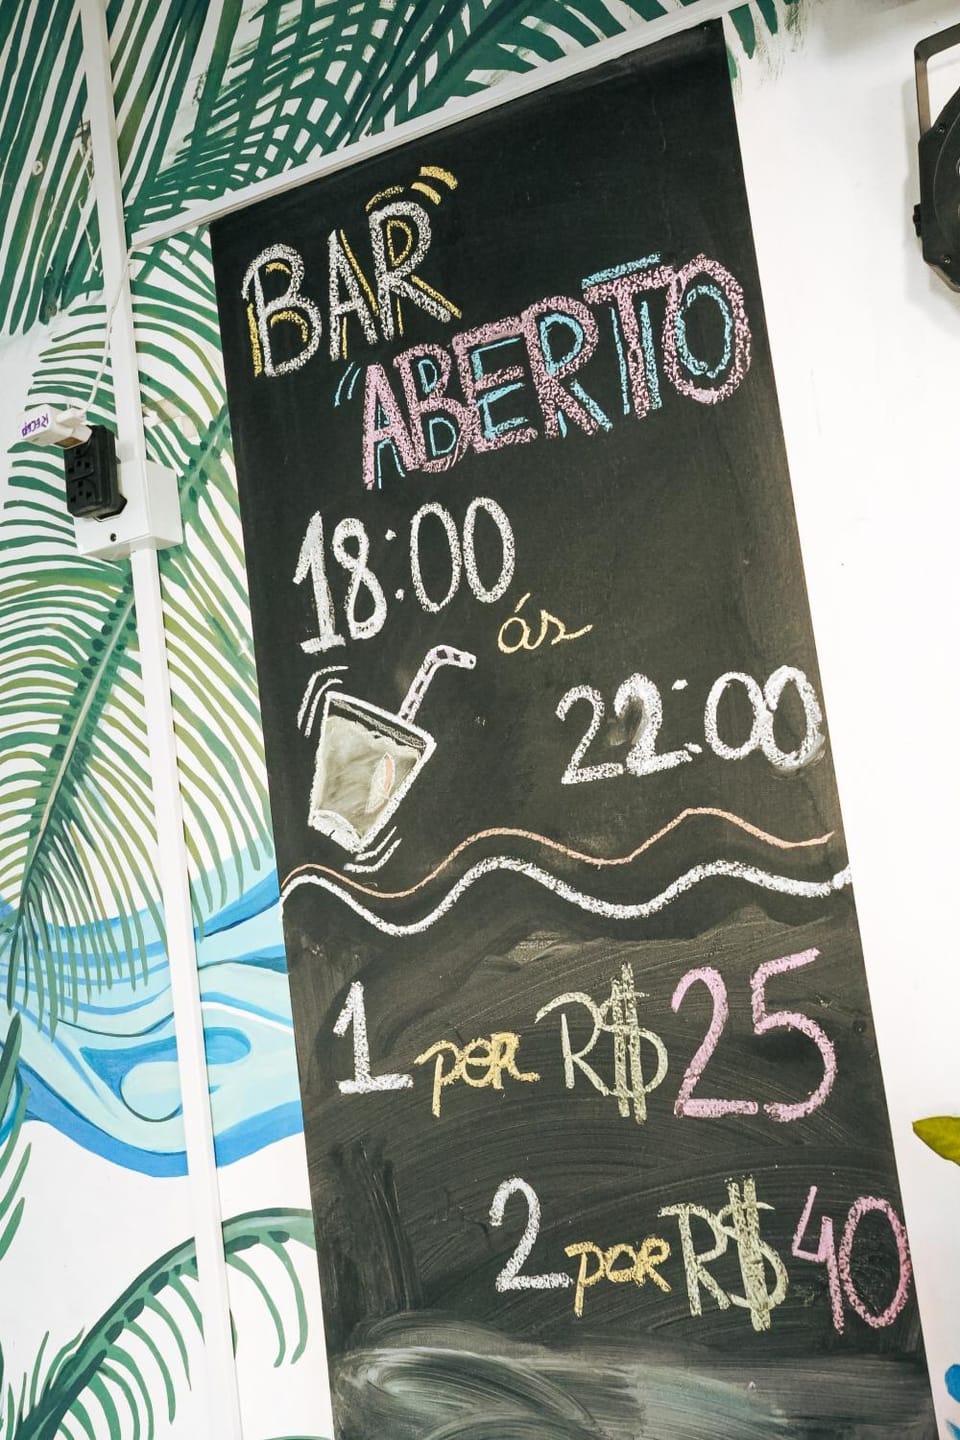 BAR
ABERTO
18:00
ás
22:00
1 por R$ 25
2 por R$ 40